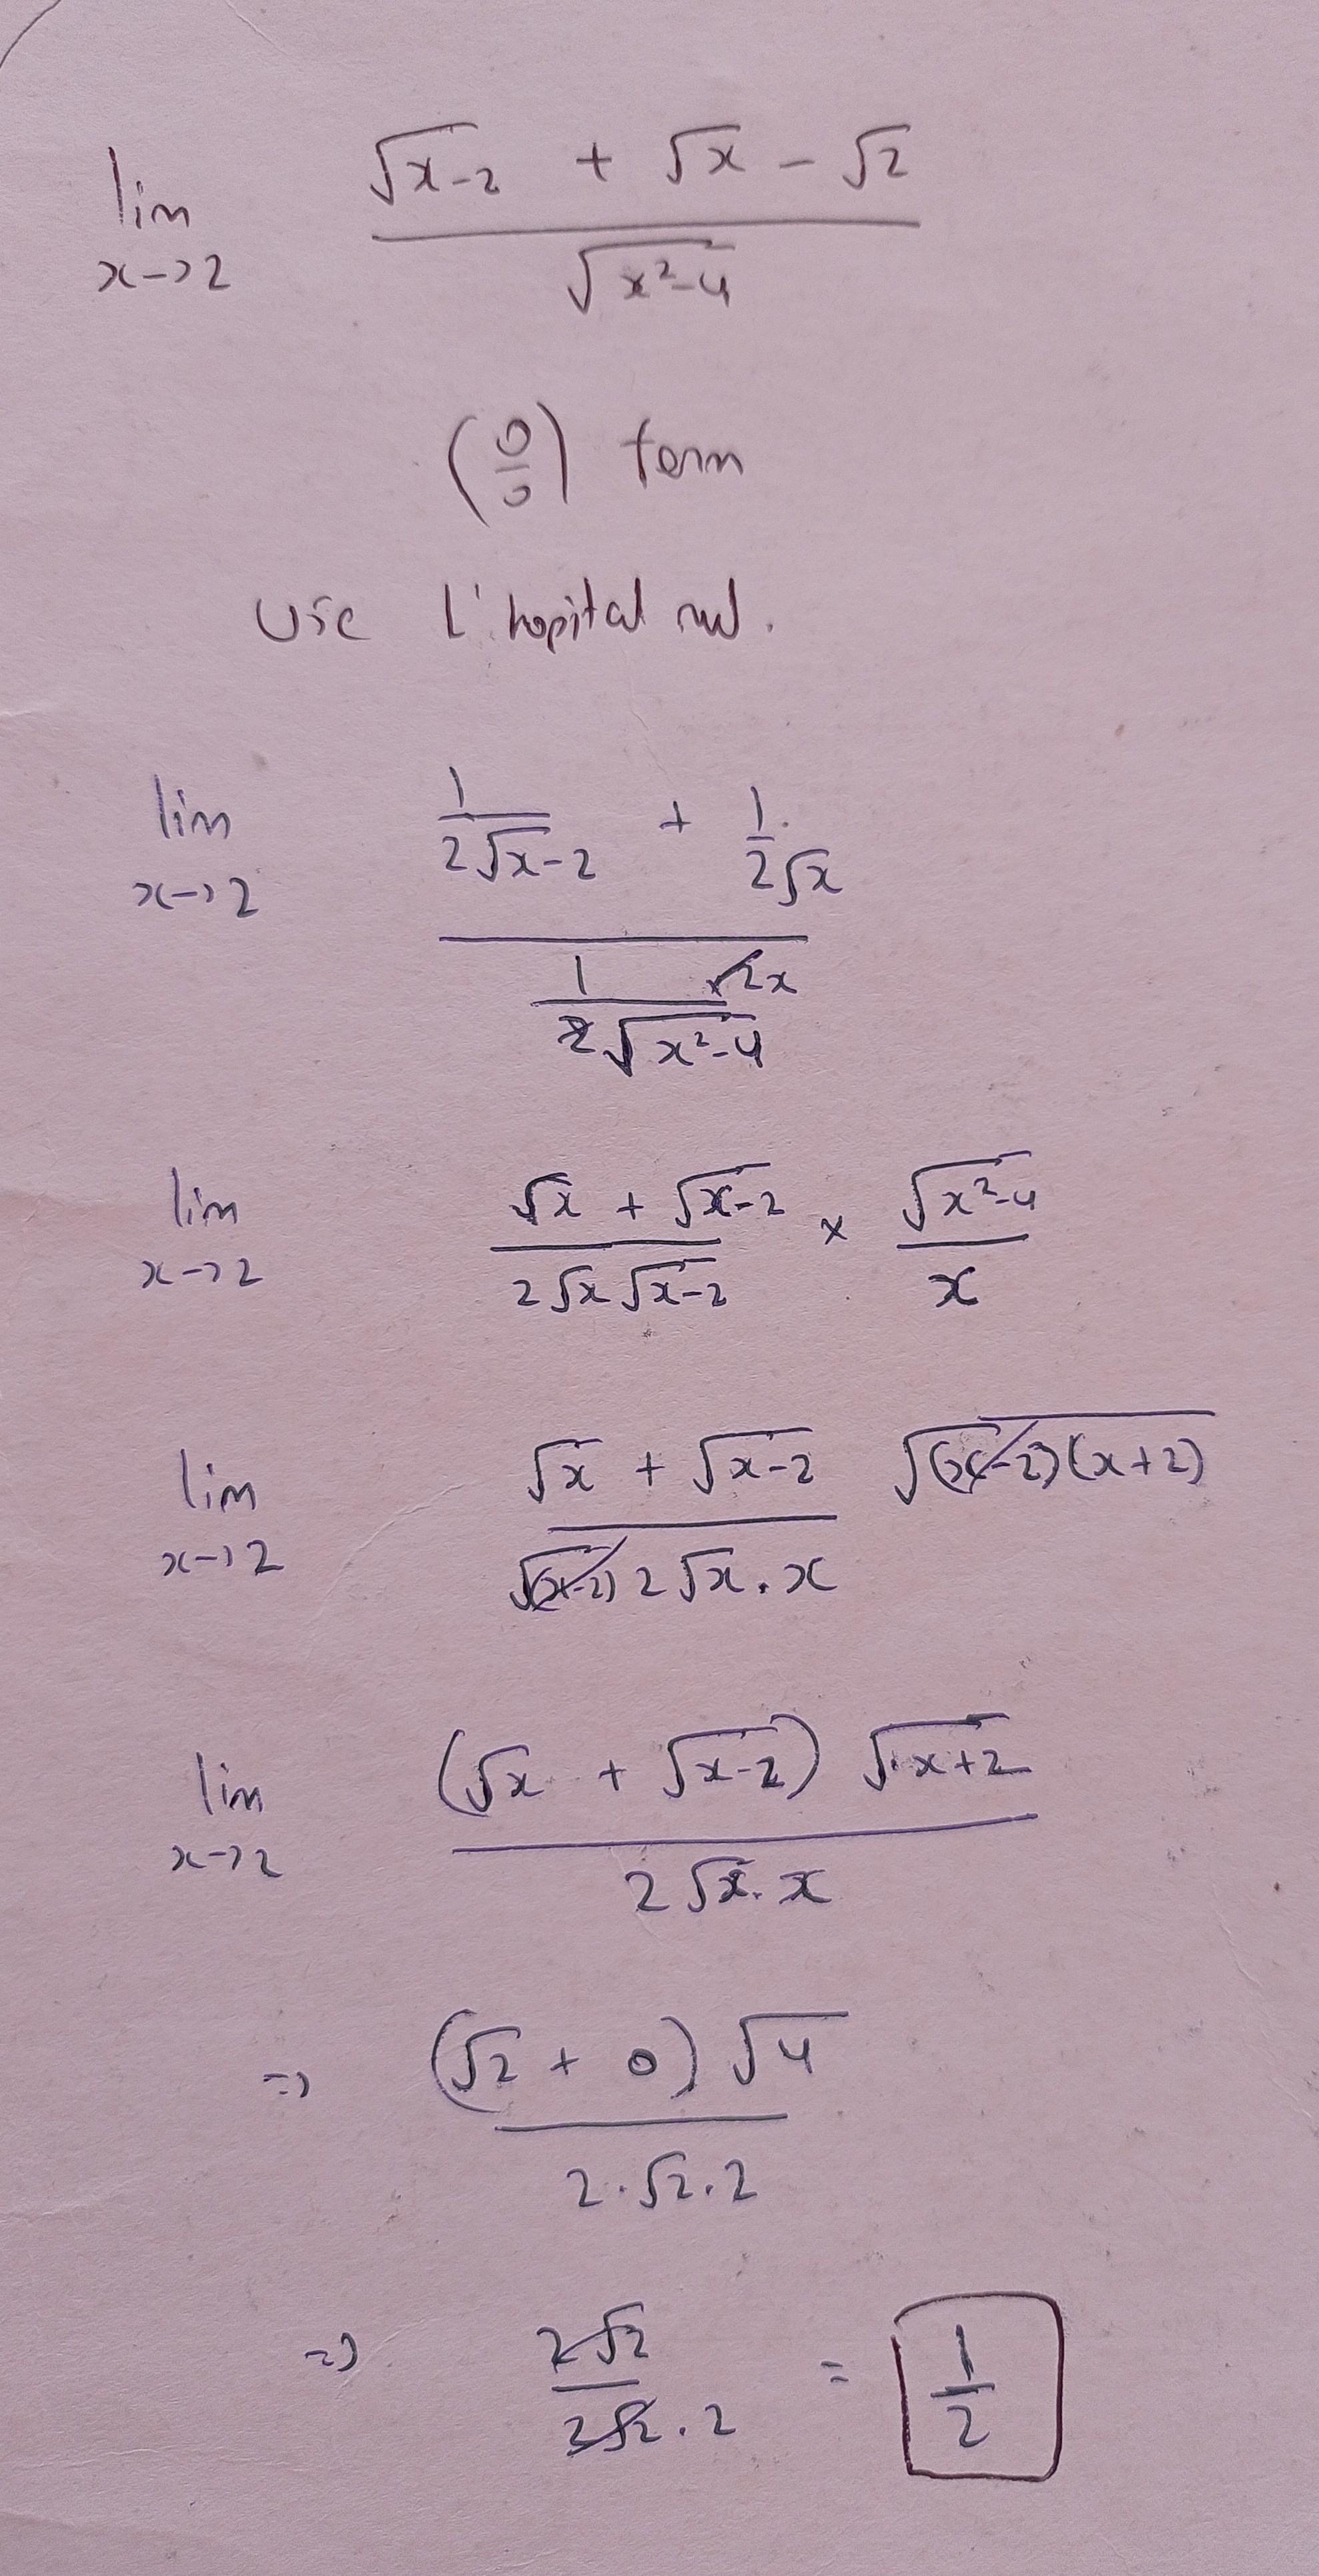 lim x->2 (√(x-2) + √x - √2) / √(x²-4)
(0/0) form
Use L'hopital rul.
lim x->2 (1/(2√(x-2)) + 1/(2√x)) / (1/(2√(x²-4)) × 2x)
lim x->2 (√x + √(x-2)) / (2√x √(x-2)) × √(x²-4) / x
lim x->2 (√x + √(x-2)) / (√(x-2) 2√x . x) √((x-2)(x+2))
lim x->2 ((√x + √(x-2)) √(x+2)) / (2√x . x)
=> ((√2 + 0) √4) / (2 . √2 . 2)
=> 2√2 / (2√2 . 2) = 1/2